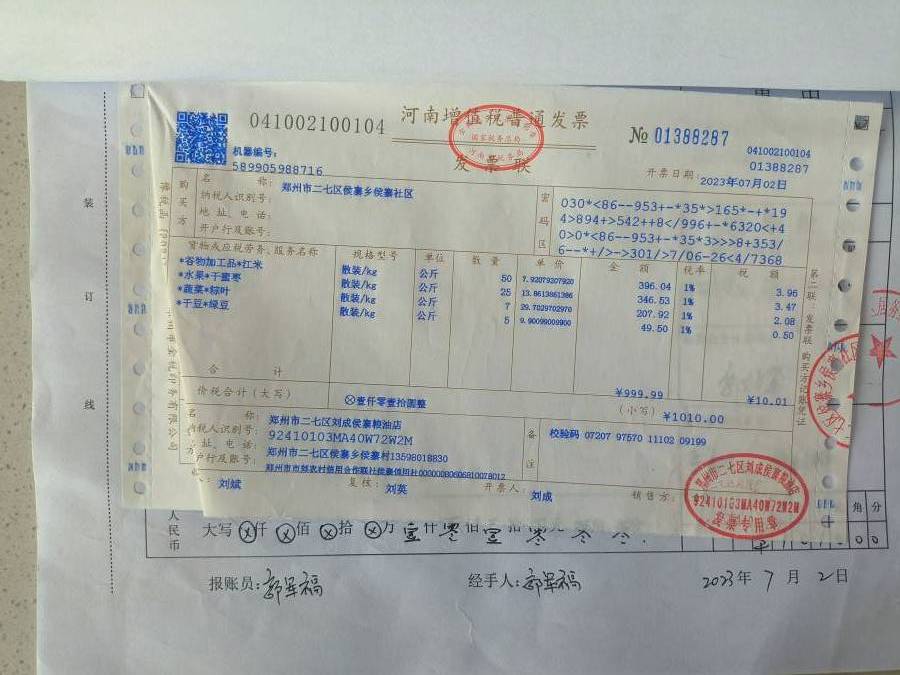 河南增值税普通发票
发票联
041002100104
№ 01388287
041002100104
01388287
机器编号:
589905988716
开票日期: 2023年07月02日
购买方
名 称: 郑州市二七区侯寨乡侯寨社区
纳税人识别号:
地址、电话:
开户行及账号:
密码区
030*<86--953+-*35*>165*-+*19
4>894+>542++8</996+-*6320<+4
0>0*<86--953+-*35*3>>>8+353/
6--*+/>->301/>7/06-26<4/7368
货物或应税劳务、服务名称 规格型号 单位 数量 单价 金额 税率 税额
*谷物加工品*江米 散装/kg 公斤 50 7.92079207920 396.04 1% 3.96
*水果*干蜜枣 散装/kg 公斤 25 13.8613861386 346.53 1% 3.47
*蔬菜*粽叶 散装/kg 公斤 7 29.7029702970 207.92 1% 2.08
*干豆*绿豆 散装/kg 公斤 5 9.90099009900 49.50 1% 0.50
合 计 ¥999.99 ¥10.01
价税合计(大写) ⊗壹仟零壹拾圆整 (小写) ¥1010.00
名 称: 郑州市二七区刘成侯寨粮油店
纳税人识别号: 92410103MA40W72W2M
地址、电话: 郑州市二七区侯寨乡侯寨村13598018830
开户行及账号: 郑州市市郊农村信用合作联社侯寨信用社00000080606810078012
备注
校验码 07207 97570 11102 09199
刘斌 复核: 刘英 开票人: 刘成 销售方:
第二联:发票联 购买方记账凭证
郑州市二七区刘成侯寨粮油店
92410103MA40W72W2M
发票专用章
装
订
线
人民币
大写 ⊗仟 ⊗佰 ⊗拾 ⊗万 壹仟 零佰 壹拾 零元
角 分
0 0
报账员: 郭军福 经手人: 郭军福 2023年 7月 2日